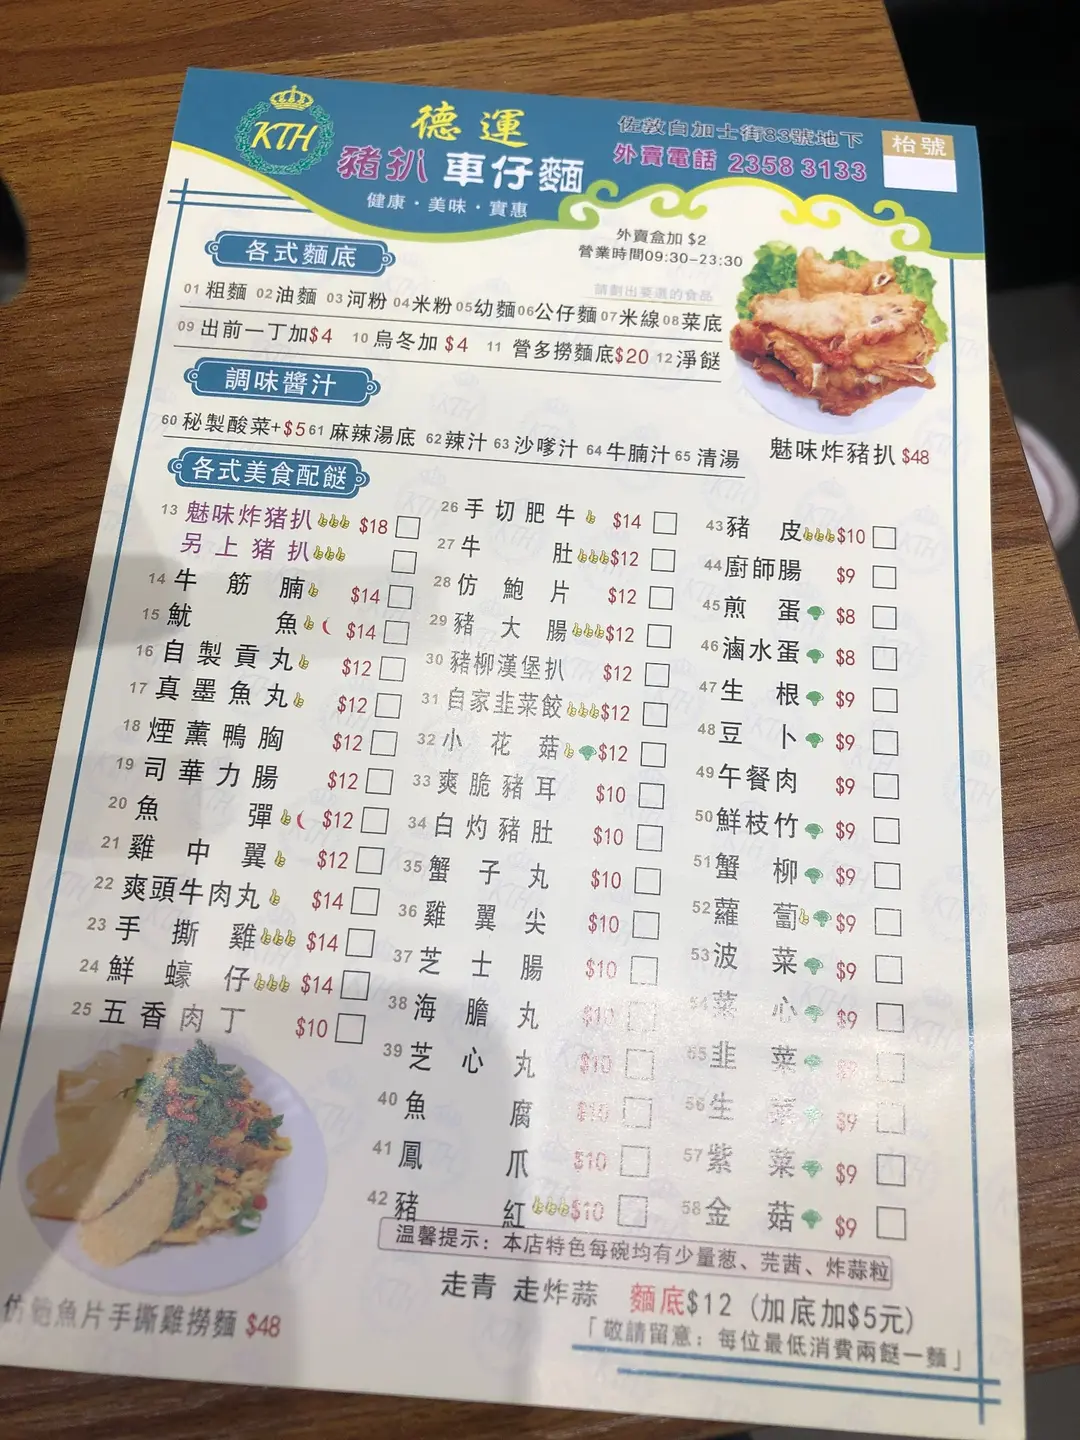 KTH
德運
豬扒 車仔麵
健康・美味・實惠
佐敦白加士街83號地下
外賣電話 2358 3133
枱號
外賣盒加 $2
營業時間09:30-23:30
請劃出要選的食品
各式麵底
01 粗麵 02 油麵 03 河粉 04 米粉 05 幼麵 06 公仔麵 07 米線 08 菜底
09 出前一丁加$4 10 烏冬加 $4 11 營多撈麵底$20 12 淨餸
調味醬汁
60 秘製酸菜+$5 61 麻辣湯底 62 辣汁 63 沙嗲汁 64 牛腩汁 65 清湯
魅味炸豬扒 $48
各式美食配餸
13 魅味炸猪扒 $18
另上猪扒
14 牛筋腩 $14
15 魷魚 $14
16 自製貢丸 $12
17 真墨魚丸 $12
18 煙薰鴨胸 $12
19 司華力腸 $12
20 魚彈 $12
21 雞中翼 $12
22 爽頭牛肉丸 $14
23 手撕雞 $14
24 鮮蠔仔 $14
25 五香肉丁 $10
26 手切肥牛 $14
27 牛肚 $12
28 仿鮑片 $12
29 豬大腸 $12
30 豬柳漢堡扒 $12
31 自家韭菜餃 $12
32 小花菇 $12
33 爽脆豬耳 $10
34 白灼豬肚 $10
35 蟹子丸 $10
36 雞翼尖 $10
37 芝士腸 $10
38 海膽丸 $10
39 芝心丸 $10
40 魚腐 $10
41 鳳爪 $10
42 豬紅 $10
43 豬皮 $10
44 廚師腸 $9
45 煎蛋 $8
46 滷水蛋 $8
47 生根 $9
48 豆卜 $9
49 午餐肉 $9
50 鮮枝竹 $9
51 蟹柳 $9
52 蘿蔔 $9
53 波菜 $9
54 菜心 $9
55 韭菜 $9
56 生菜 $9
57 紫菜 $9
58 金菇 $9
仿鮑魚片手撕雞撈麵 $48
温馨提示：本店特色每碗均有少量葱、芫茜、炸蒜粒
走青 走炸蒜 麵底$12（加底加$5元）
「敬請留意：每位最低消費兩餸一麵」